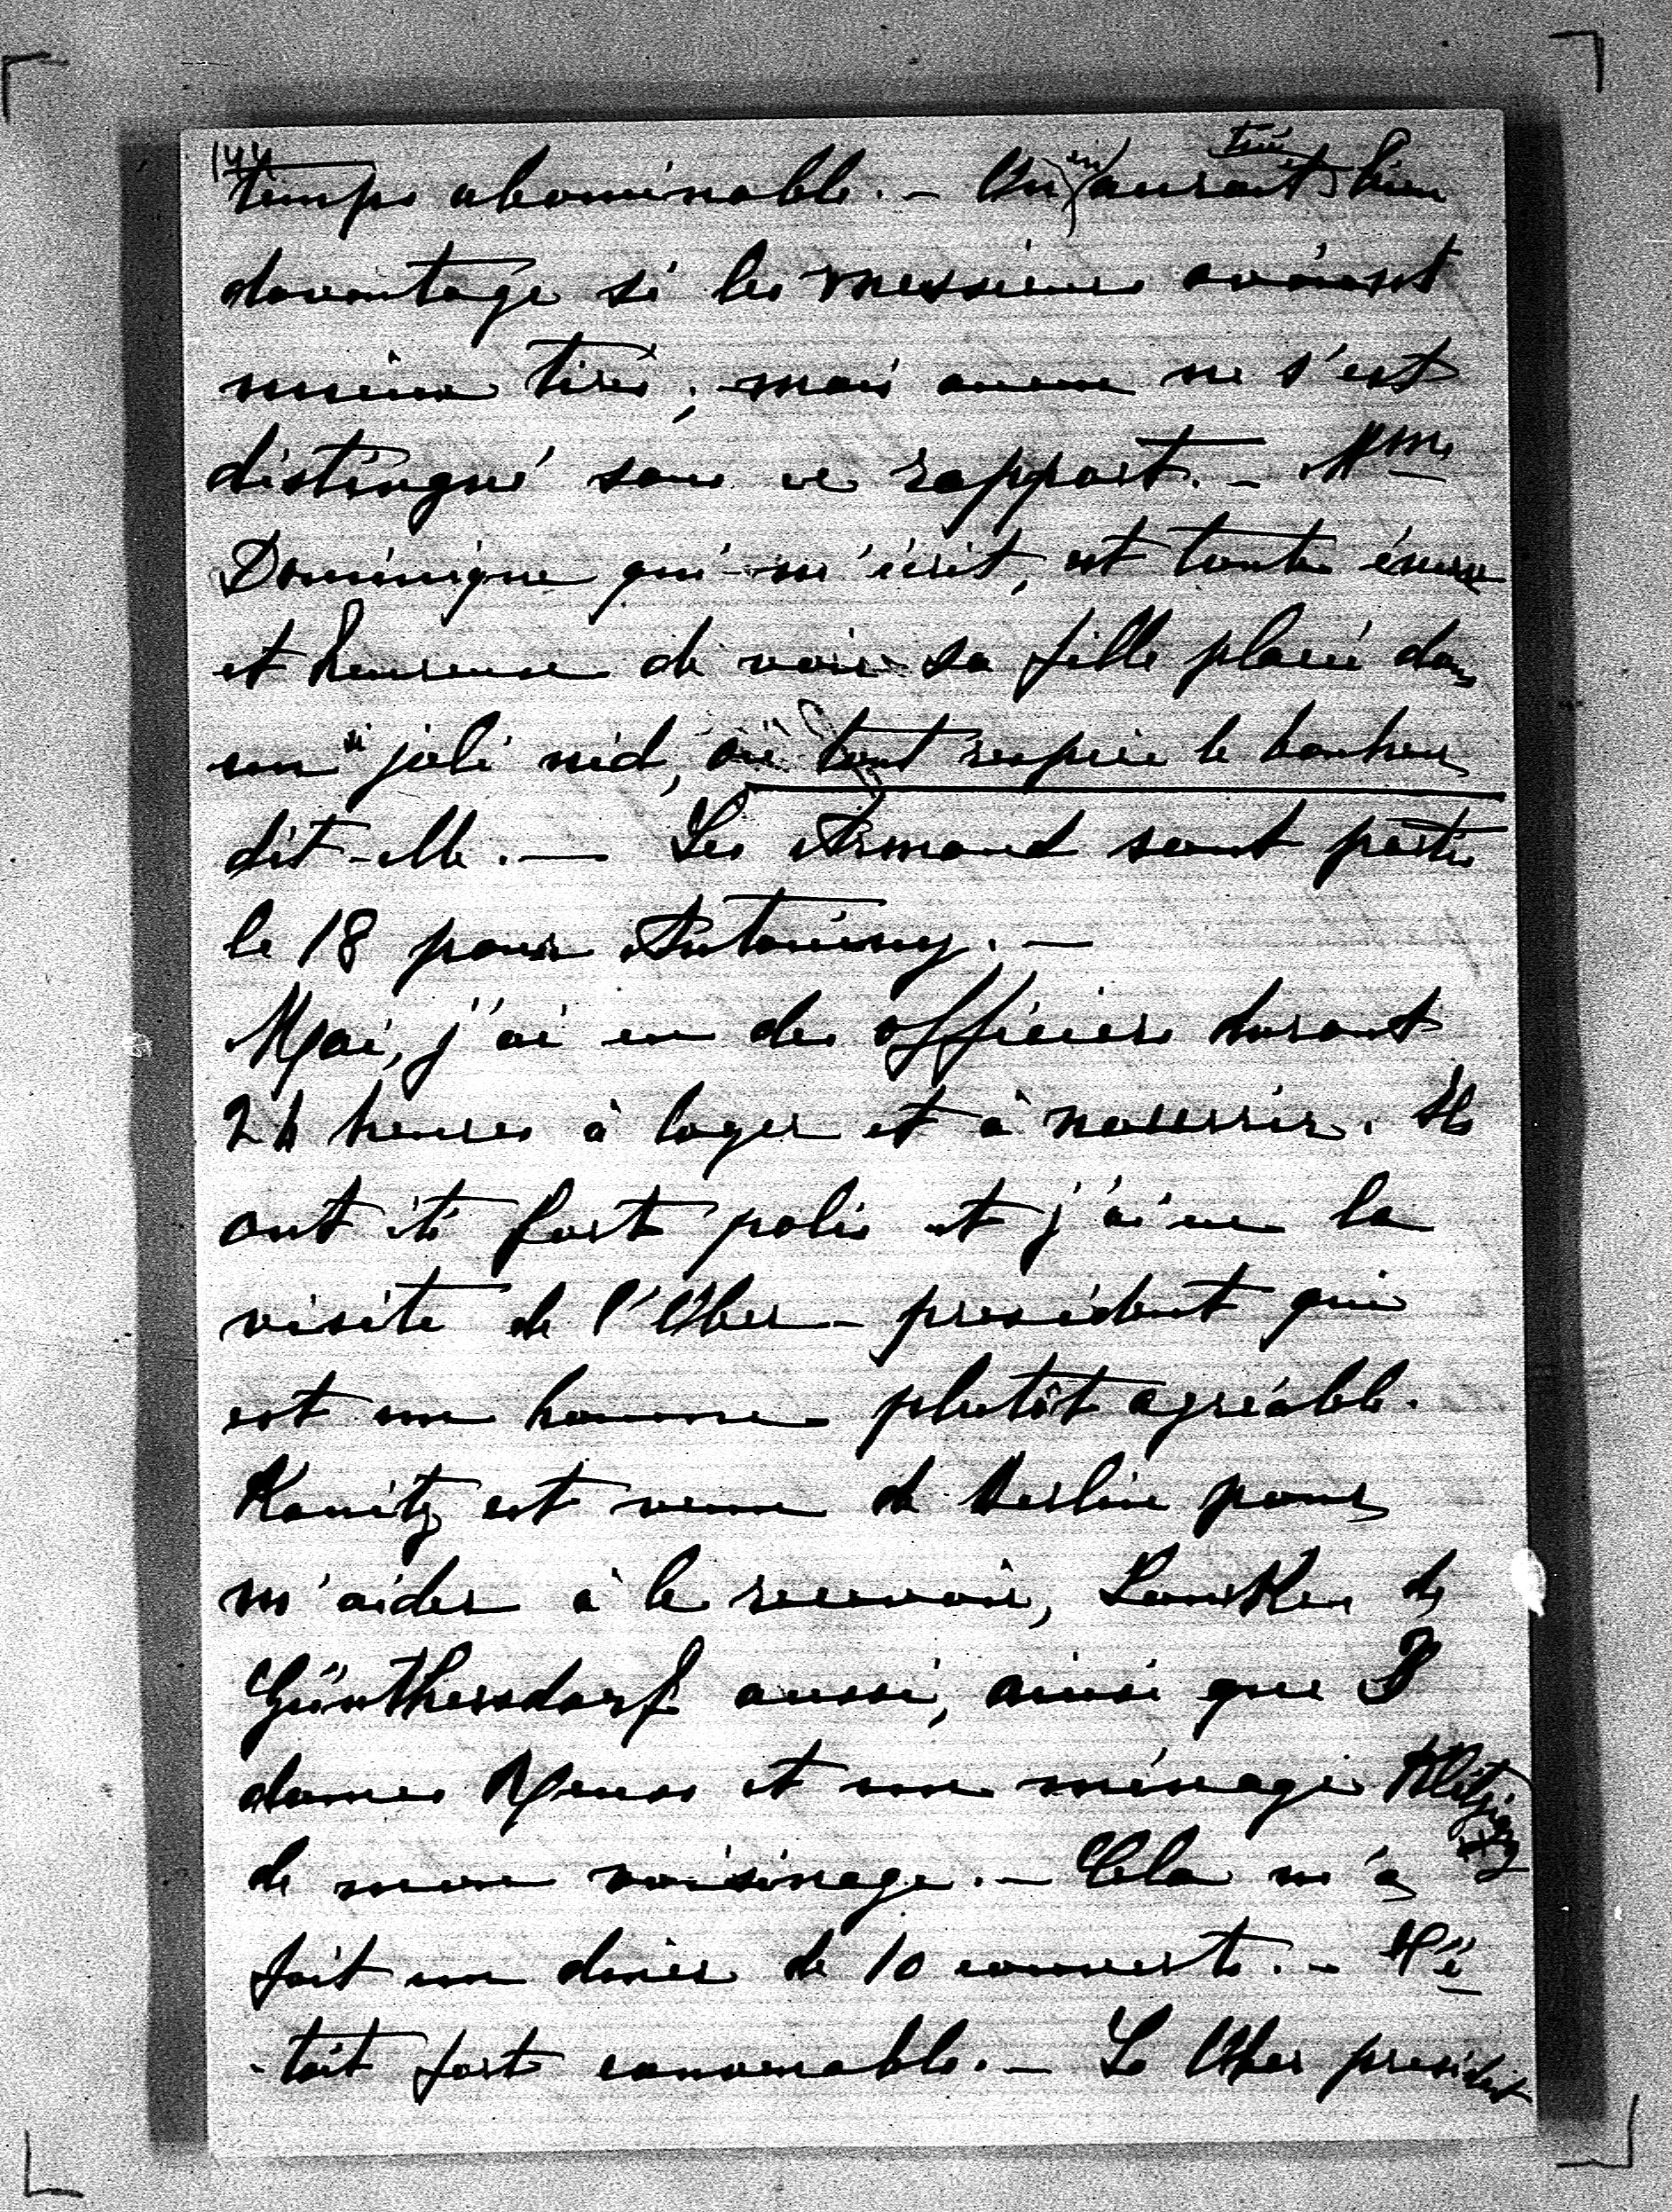 144
temps abominable. – On en aurait tué bien
davantage si les messieurs avaient
mieux tiré; mais aucun ne s'est
distingué sous ce rapport. – Mme
Dominique qui m'écrit, est toute émue
et heureuse de voir sa fille placée dans
un si joli nid, où tout respire le bonheur
dit-elle. — Les Armand sont partis
le 18 pour Antoniny. —
Moi, j'ai eu des officiers durant
24 heures à loger et à nourrir. Ils
ont été fort polis et j'ai eu la
visite de l'Ober-president qui
est un homme plutôt agréable.
Kanitz est venu de Berlin pour
m'aider à le recevoir, de
Günthersdorf aussi, ainsi que
dames et un ménage
de mon voisinage. – Cela m'a
fait un diner de 10 couverts. – C'é
-tait fort convenable. – Le Ober president